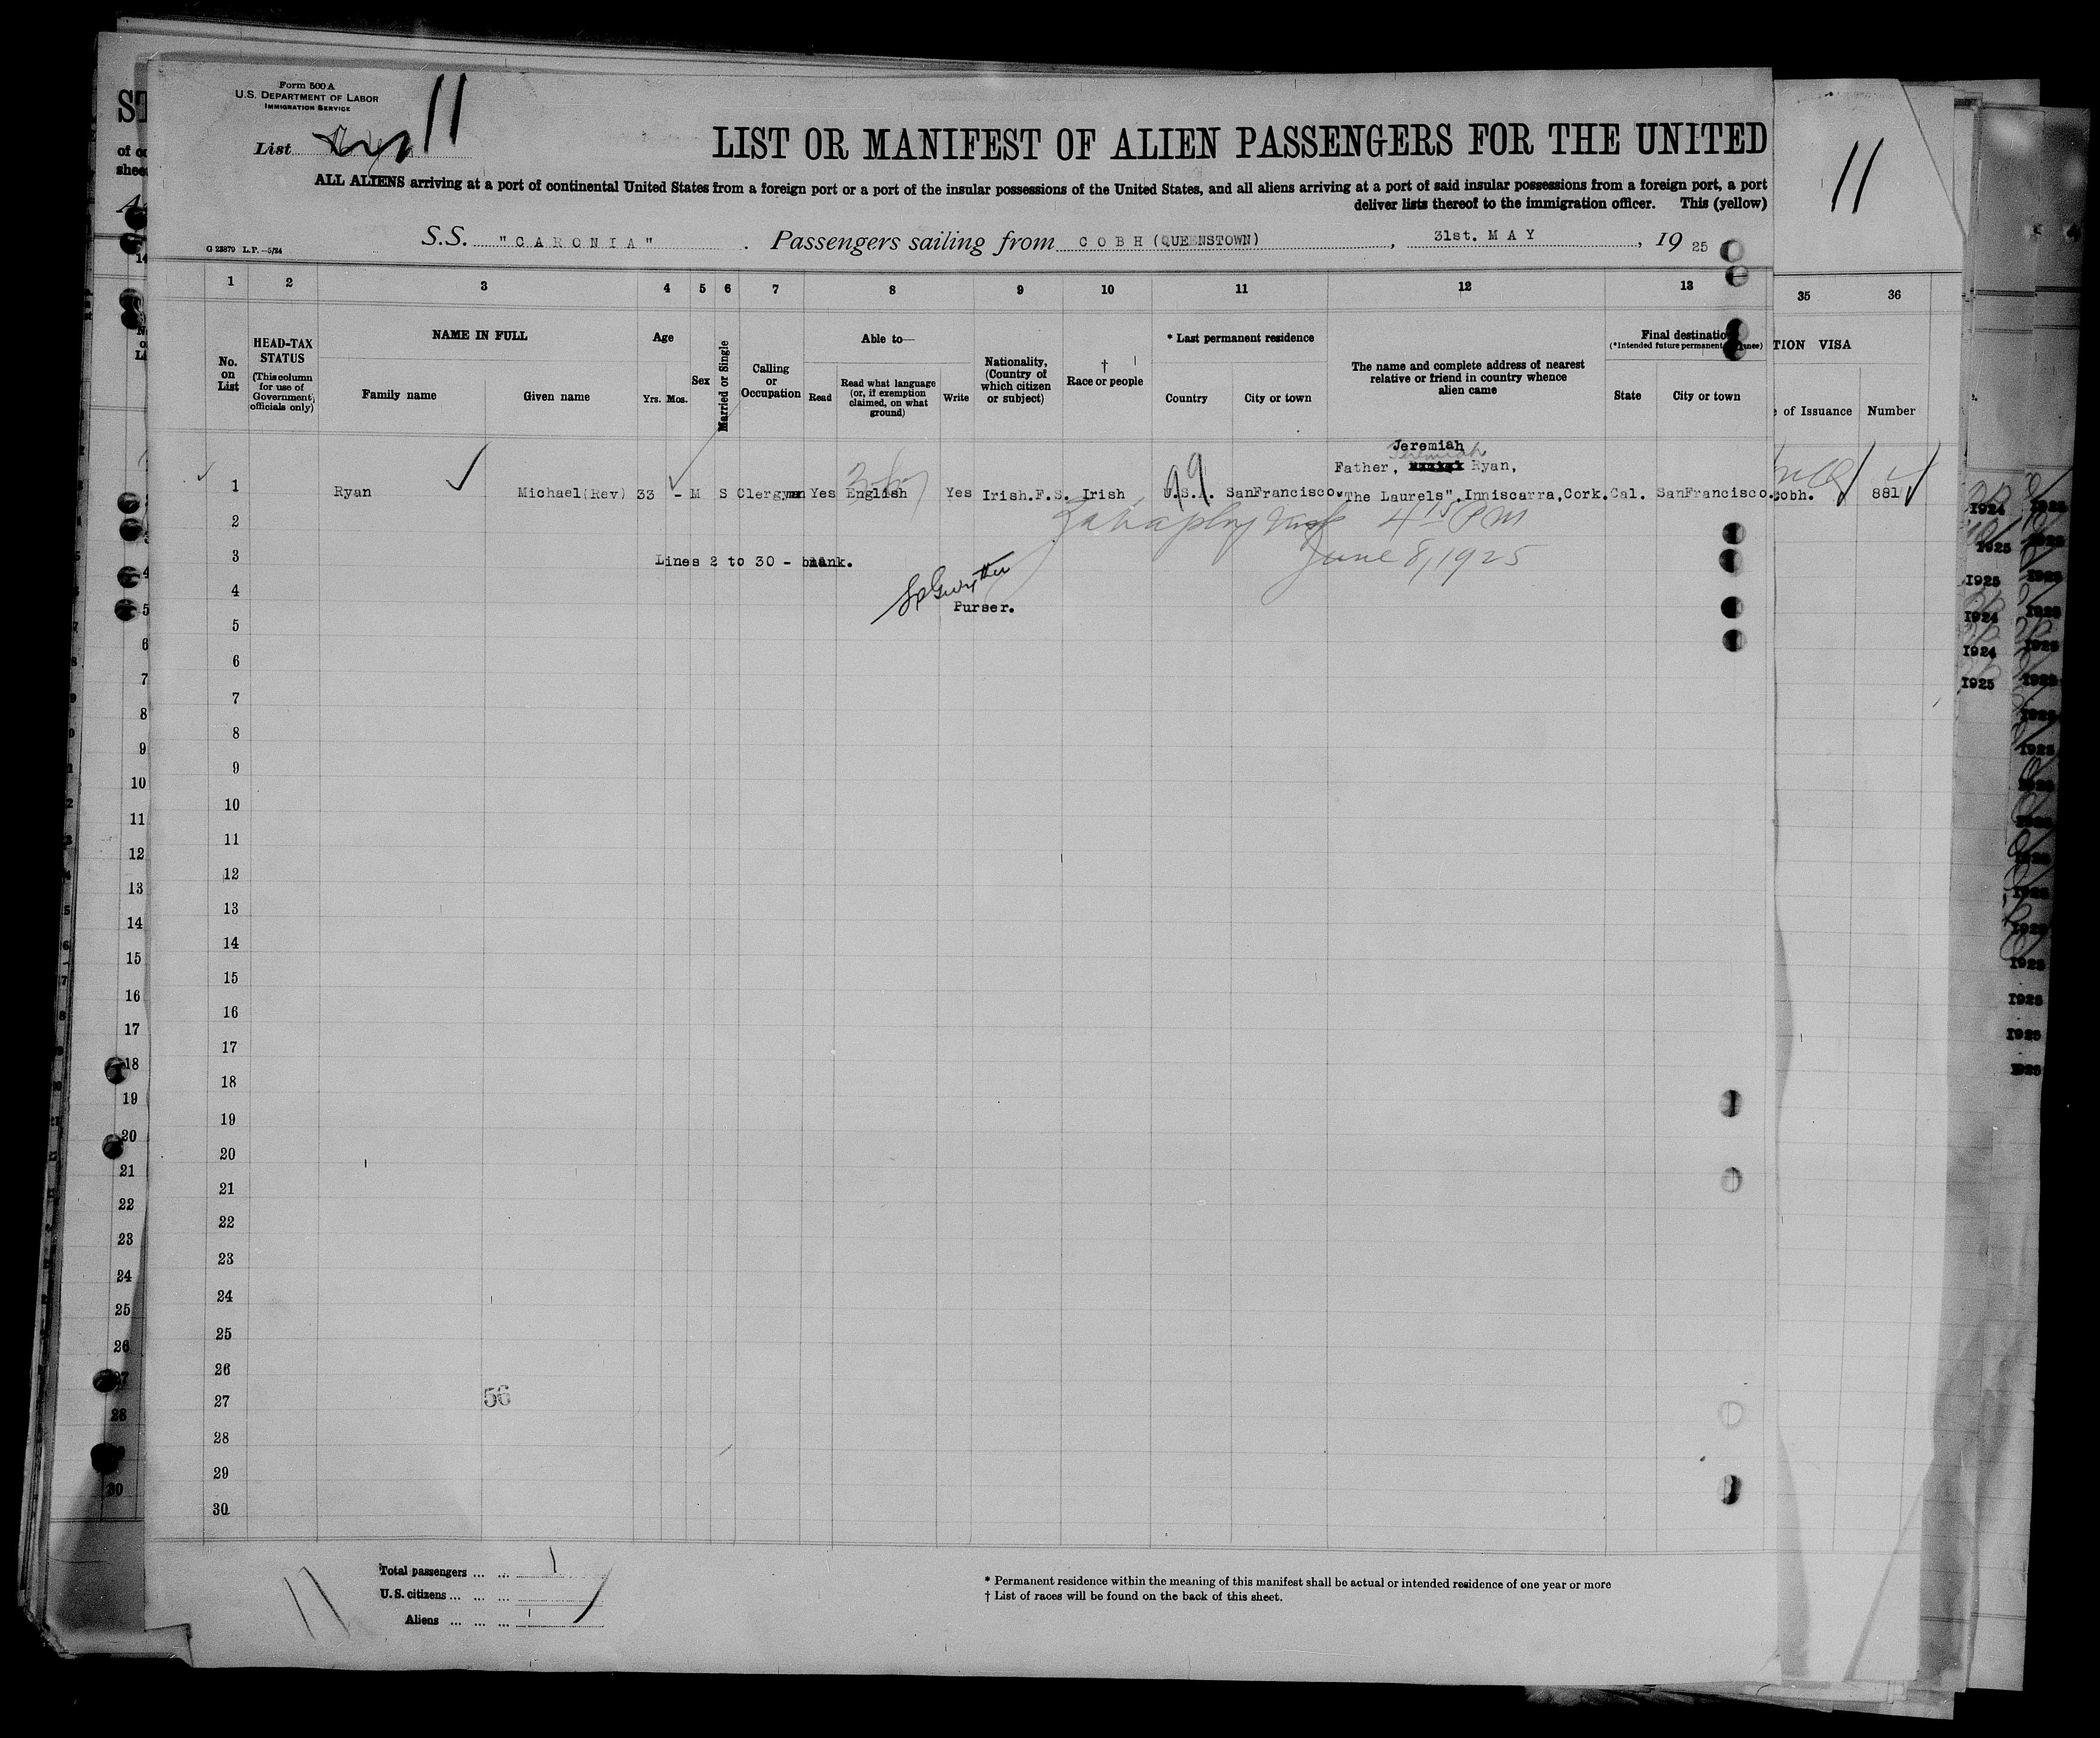 Form 500 A
U.S. DEPARTMENT OF LABOR
IMMIGRATION SERVICE
List 11
LIST OR MANIFEST OF ALIEN PASSENGERS FOR THE UNITED
ALL ALIENS arriving at a port of continental United States from a foreign port or a port of the insular possessions of the United States, and all aliens arriving at a port of said insular possessions from a foreign port, a port
deliver lists thereof to the immigration officer. This (yellow)
G 23879 L.P.—5/24
S.S. "CARONIA". Passengers sailing from COBH (QUEENSTOWN), 31st. MAY, 1925
11
1 2 3 4 5 6 7 8 9 10 11 12 13 35 36
No. on List
HEAD-TAX STATUS (This column for use of Government officials only)
NAME IN FULL
Family name Given name
Age
Yrs. Mos.
Sex
Married or Single
Calling or Occupation
Able to—
Read
Read what language (or, if exemption claimed, on what ground)
Write
Nationality, (Country of which citizen or subject)
† Race or people
* Last permanent residence
Country City or town
The name and complete address of nearest relative or friend in country whence alien came
Final destination
(*Intended future permanent
State City or town
TION VISA
of Issuance Number
Jeremiah
Jeremiah
Father, Ryan,
1 Ryan Michael(Rev) 33 - M S Clergyman Yes English Yes Irish.F.S. Irish U.S.A. SanFrancisco. "The Laurels",Inniscarra,Cork. Cal. SanFrancisco. Cobh. 881
2 4 15 PM
3 Lines 2 to 30 - blank. June 8, 1925
4 Purser.
5
6
7
8
9
10
11
12
13
14
15
16
17
18
19
20
21
22
23
24
25
26
27
56
28
29
30
Total passengers ... ... 1
U.S. citizens ... ... ...
Aliens ... ... ... 1
11
* Permanent residence within the meaning of this manifest shall be actual or intended residence of one year or more
† List of races will be found on the back of this sheet.
1924
1925
1925
1924
1924
1925